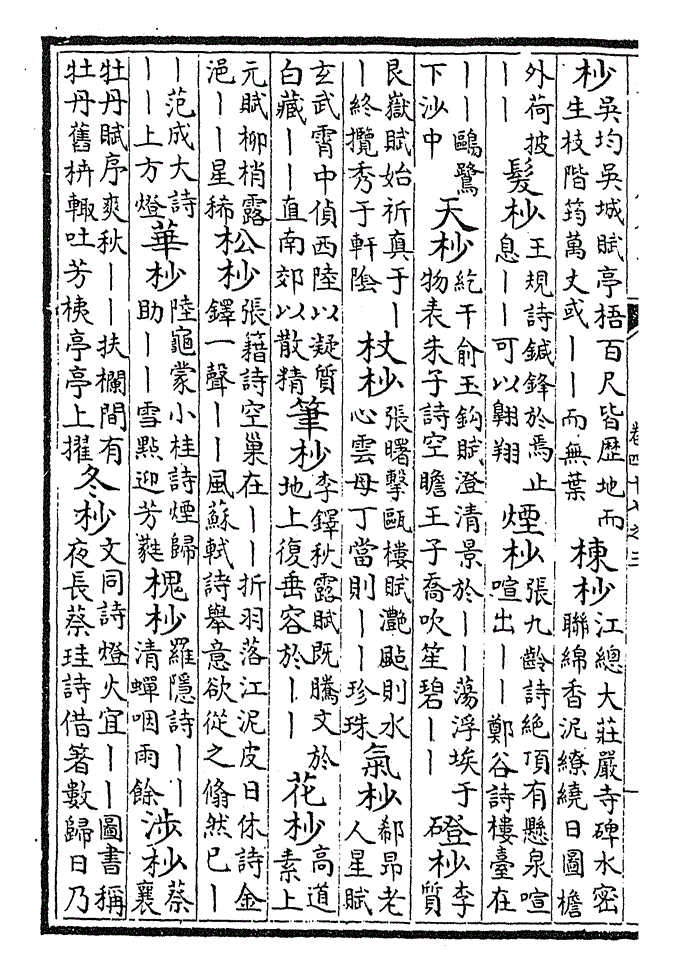 杪吳均吳城賦亭梧百尺皆歷地而生枝階筠萬丈或丨丨而無葉棟杪江總大莊嚴寺碑水密聯綿香泥繚繞日圖檐
外荷披丨丨髮杪王規詩鍼鋒於焉止息丨丨可以翺翔煙杪張九齡詩絕頂有懸泉喧喧出丨丨鄭谷詩樓臺在
丨丨鷗鷺下沙中天杪紇干俞玉鈎賦澄清景於丨丨蕩浮埃于物表朱子詩空瞻王子喬吹笙碧丨丨磴杪李質
艮嶽賦始祈真于丨丨終攬秀于軒陰杖杪張曙擊甌樓賦灔䬙則水心雲母丁當則丨丨珍珠氣杪郗昂老人星賦
玄武霄中偵西陸以凝質白藏丨丨直南郊以散精筆杪李鐸秋露賦既騰文於地上復垂容於丨丨花杪高道素上
元賦柳梢露浥丨丨星稀松杪張籍詩空巢在丨丨折羽落江泥皮日休詩金鐸一聲丨丨風蘇軾詩舉意欲從之翛然已丨
丨范成大詩丨丨上方燈華杪陸龜蒙小桂詩煙歸助丨丨雪點迎芳蕤槐杪羅隱詩丨丨清蟬咽雨餘涉杪蔡襄
牡丹賦序爽秋丨丨扶欄間有牡丹舊枿輙吐芳桋亭亭上擢冬杪文同詩燈火宜丨丨圖書稱夜長蔡珪詩借箸數歸日乃